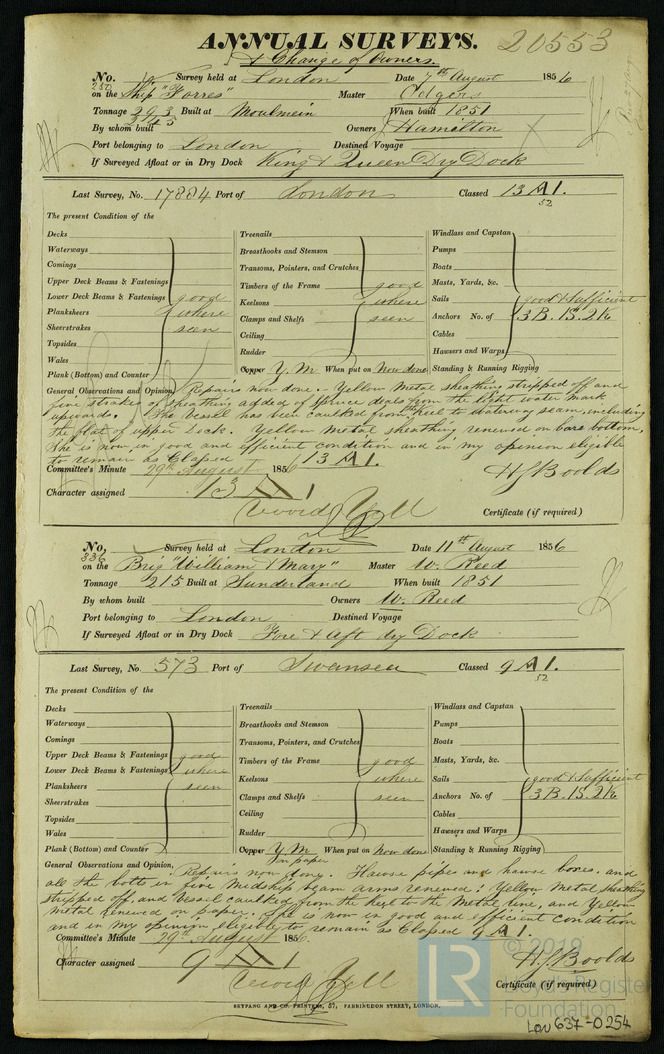 ANNUAL SURVEYS. 20553
& Change of Owners.
No. Survey held at London Date 7th August 1856
252 on the Ship "Forres" Master Edgers
Tonnage 293 Built at Moulmein When built 1851
By whom built Owners Hamilton
Port belonging to London Destined Voyage
If Surveyed Afloat or in Dry Dock King & Queen Dry Dock
Last Survey, No. 17884 Port of London Classed 13 A 1.
52
The present Condition of the
Decks Treenails Windlass and Capstan
Waterways Breasthooks and Stemson Pumps
Comings Transoms, Pointers, and Crutches Boats
Upper Deck Beams & Fastenings Timbers of the Frame good Masts, Yards, &c.
Lower Deck Beams & Fastenings good Keelsons where Sails good & Sufficient
Planksheers where Clamps and Shelfs seen Anchors No. of 3 B. 1 S. 2 K
Sheerstrakes seen Ceiling Cables
Topsides Rudder Hawsers and Warps
Wales Copper Y. M When put on Now done Standing & Running Rigging
Plank (Bottom) and Counter
General Observations and Opinion, Repairs now done. - Yellow Metal sheathing stripped off and
five strakes of sheathing added of spruce deals from the light water mark
upwards. The Vessel has been caulked from the keel to watering seam, including
the flat of upper deck. Yellow Metal sheathing renewed on bare bottom.
She is now in good and efficient condition and in my opinion eligible
to remain as Classed 13 A 1.
Committee's Minute 29th August 1856
H J Boolds
Character assigned 13 A 1
Certificate (if required)
No. Survey held at London Date 11th August 1856
336 on the Brig "William & Mary" Master W. Reed
Tonnage 215 Built at Sunderland When built 1851
By whom built Owners W. Reed
Port belonging to London Destined Voyage
If Surveyed Afloat or in Dry Dock Fore & Aft dry Dock
Last Survey, No. 573 Port of Swansea Classed 9 A 1.
52
The present Condition of the
Decks Treenails Windlass and Capstan
Waterways Breasthooks and Stemson Pumps
Comings Transoms, Pointers, and Crutches Boats
Upper Deck Beams & Fastenings good Timbers of the Frame good Masts, Yards, &c.
Lower Deck Beams & Fastenings where Keelsons where Sails good & Sufficient
Planksheers seen Clamps and Shelfs seen Anchors No. of 3 B. 1 S. 2 K
Sheerstrakes Ceiling Cables
Topsides Rudder Hawsers and Warps
Wales Copper Y. M When put on Now done Standing & Running Rigging
Plank (Bottom) and Counter on paper
General Observations and Opinion, Repairs now done. Hawse pipes and hawse boxes, and
all the bolts in five Midship beam arms renewed: Yellow Metal sheathing
stripped off, and Vessel caulked from the keel to the Metal line, and Yellow
Metal renewed on paper. She is now in good and efficient condition
and in my opinion eligible to remain as Classed 9 A 1.
Committee's Minute 29th August 1856
H J Boolds
Character assigned 9 A 1
Certificate (if required)
SEYFANG AND CO. PRINTERS, 57, FARRINGDON STREET, LONDON.
© 2019
LR Lloyd's Register
Foundation
LON 637-0254